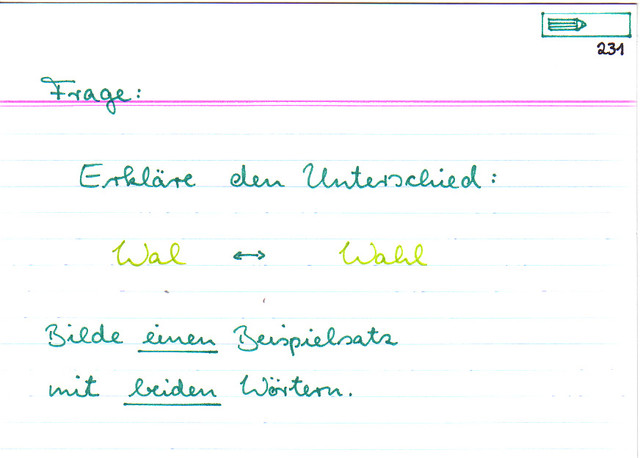 231
Frage:
Erkläre den Unterschied:
Wal ↔ Wahl
Bilde einen Beispielsatz
mit beiden Wörtern.